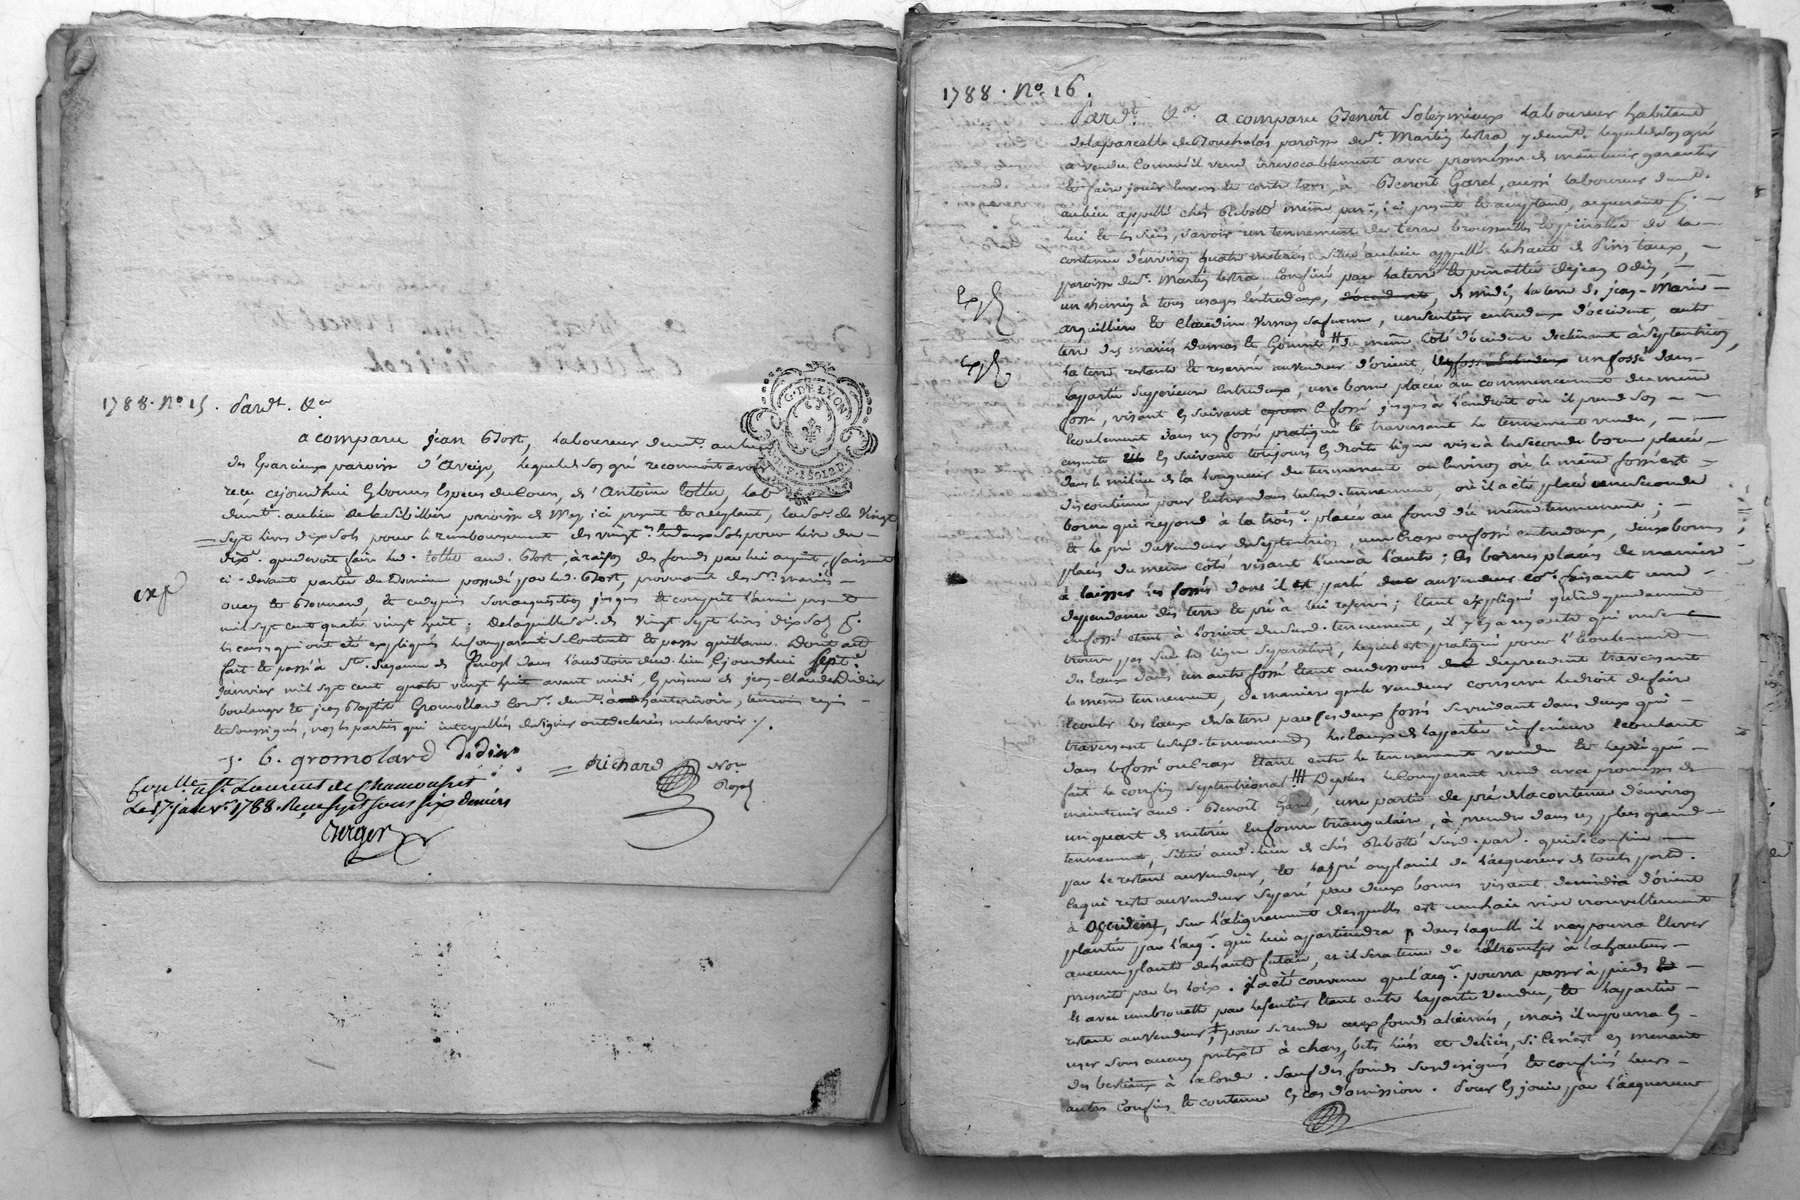 1788. No. 15. Pardt. &a
a comparu jean Bost, laboureur demt. au lieu
des Eparcieux paroisse d'Aveize, lequel de son gré reconnoit avoir
recu cejourdhui en bonnes Especes du Cours, de Antoine tollet, lab
demt. au lieu de la Sibilliere paroisse de Meys, ici present & acceptant, la so. de Vingt
sept livres dix sols pour le remboursement des vingt & deux sols pour livre du
dixe. que devoit faire led. tollet aud. Bost, à raison des fonds par lui acquis, faisant
ci-devant partie du Domaine possedé par led. Bost, provenant des Sr. mariés
& Bonnard, & ce depuis son acquisition jusques & compris l'année presente
mil sept cent quatre vingt huit; De laquelle so. de vingt sept livres dix sols p.
les causes qui ont été expliquées le Comparant se Contente & passe quittance. Dont acte
fait & passé à Ste. Suzanne de dans l'auditoire dud. lieu Cejourdhui sept
Janvier mil sept cent quatre vingt huit avant midi, En presence de jean-Claude Didier
boulanger & jean Baptiste Gromollard Cor. demt. à hauterivoire, temoins requis
& soussignés, non les parties qui interpellées de signer ont declarés ne le savoir ./.
J. B. gromolard Didier
Richard Nore
Royal
Conlle. a St. Laurent de Chamousset
Le 17 janvr. 1788. Recu sept sous six deniers
Verger
exp
G. DE LYON
1788. No. 16.
Pardt. &a. a comparu Benoît Soleymieux laboureur habitant
de la parcelle de Bouchalas paroisse de St. Martin lestra, y demt. lequel de son gré
a vendu Comme il vend irrevocablement avec promesse de maintenir garantir
& faire jouir Envers & contre tous, à Benoît Garel, aussi laboureur demt.
au lieu appellé chés Rebotté même pare. ici present & acceptant, acquerant p.
lui & les siens, savoir un tennement de terre broussailles & pinatée de la
contenue d'environ quatre meterées situé au lieu appellé le haut de Pinstaux,
paroisse de St. Martin lestra Confiné par la terre & pinattée de jean Odin,
un chemin à tous usages Entredeux, de midi, la terre de jean-Marie
arquilliere & Claudine Vernay sa femme, un sentier entredeux d'occident, autre
terre des mariés Dumas & Gonint # du même Coté d'occident declinant à Septentrion,
la terre restante & reservée au Vendeur d'orient, un fossé dans
la partie superieure Entredeux, une borne placée au commencement du même
fossé, visant En suivant le fossé jusqu'à l'endroit où il prend son
Ecoulement dans un fossé pratiqué & traversant le tennement vendu,
ensuite En suivant toujours En droite ligne vise à la seconde borne placée
dans le milieu de la longueur du tennement ou Environ où le même fossé est
discontinué pour Entrer dans led. tennement, où il a été placé une seconde
borne qui repond à la troise. placée au fond du même tennement;
Et le pré du vendeur de Septentrion, une Crase ou fossé entredeux, deux bornes
placées du même coté visant l'une à l'autre; les bornes placées de maniere
à laisser les fossés dont il est parlé au vendeur Co. faisant une
dependance des terre & pré à lui reservés; Etant expliqué qu'independamment
du fossé etant à l'orient dud. tennement, il y en a un autre qui ne se
trouve pas sur la ligne separative, lequel est pratiqué pour l'Ecoulement
des Eaux dans un autre fossé Etant audessous du precedent traversant
le même tennement, de maniere que le Vendeur conserve le droit de faire
Ecouler les Eaux de sa terre par ces deux fossés se vuidant dans deux qui
traversent led. tennement, les Eaux de la partie inferieure Ecoulant
dans le fossé ou Crase Etant entre le tennement vendu & le pré qui
fait le confin Septentrional !!! Deplus le Comparant vend avec promesse de
maintenir aud. Benoît Garel, une partie de pré de la contenue d'environ
un quart de meterée En forme triangulaire, à prendre dans un plus grand
tennement, situé aud. lieu de chés Rebotté susd. pare. qui se confine
par le restant au vendeur, & le pré ou plant de l'acquereur de toute part.
Ce qui reste au vendeur separé par deux bornes visant d'orient
à Occident, sur l'alignement desquelles est une haie vive nouvellement
plantée par l'acqr. qui lui appartiendra p dans laquelle il ne pourra Elever
aucun plant de haute futaie, et il sera tenu de l'Etronsser à la hauteur
prescrite par les loix. Il a été convenu que l'acqr. pourra passer à pieds
Et avec une brouette par le sentier Etant entre la partie vendue, & la partie
restant au vendeur, ‡ pour se rendre aux fonds alienés, mais il ne pourra En
user sous aucun pretexte à chars, bets liées et deliées, si ce n'est en menant
des bestiaux à la corde. Sauf des fonds susdesignés & confinés leurs
autres Confins & contenue En cas d'omission. Pour En jouir par l'acquereur
Exp.
Exp.